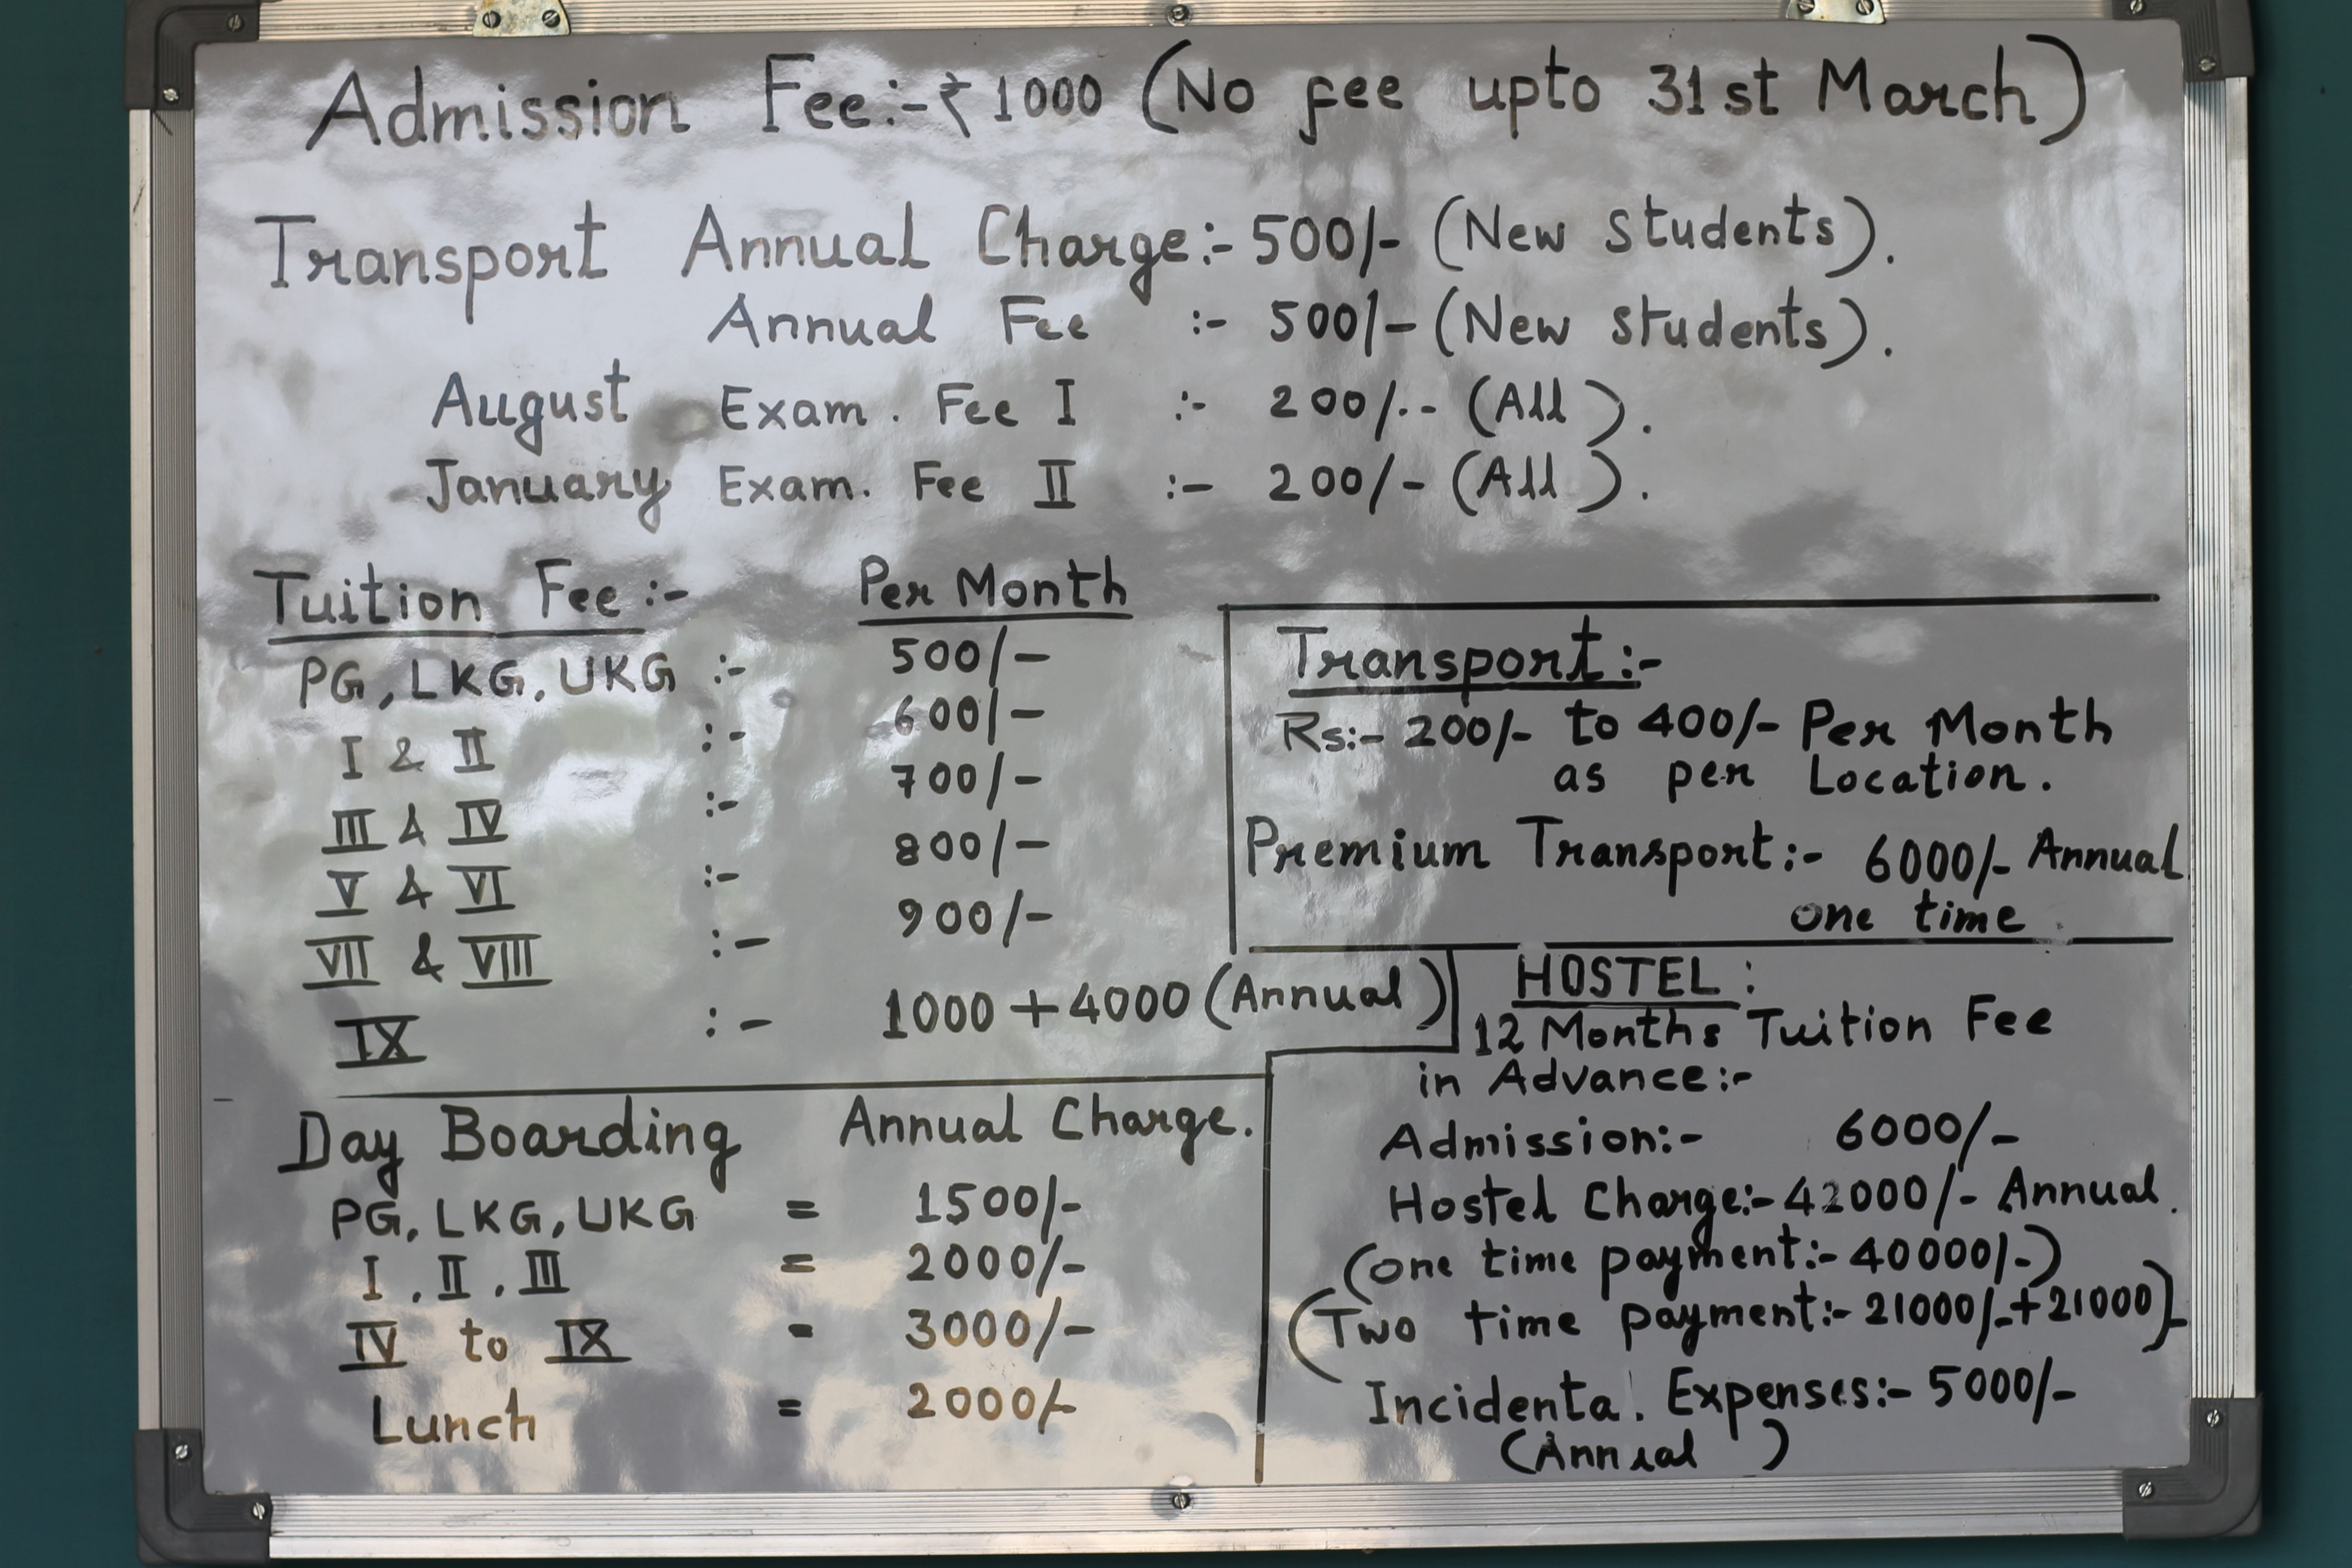 Admission Fee:-₹1000 (No fee upto 31st March)
Transport Annual Charge:- 500/- (New Students).
Annual Fee :- 500/- (New Students).
August Exam. Fee I :- 200/.- (All).
January Exam. Fee II :- 200/- (All).
Tuition Fee:- Per Month
PG, LKG, UKG :- 500/-
I & II :- 600/-
III & IV :- 700/-
V & VI :- 800/-
VII & VIII :- 900/-
IX :- 1000 + 4000 (Annual)
Transport:-
Rs:- 200/- to 400/- Per Month
as per Location.
Premium Transport:- 6000/- Annual
one time
Day Boarding Annual Charge.
PG, LKG, UKG = 1500/-
I, II, III = 2000/-
IV to IX = 3000/-
Lunch = 2000/-
HOSTEL:
12 Months Tuition Fee
in Advance:-
Admission:- 6000/-
Hostel Charge:- 42000/- Annual.
(one time payment:- 40000/-)
(Two time payment:- 21000/-+21000)-
Incidental Expenses:- 5000/-
(Annual)